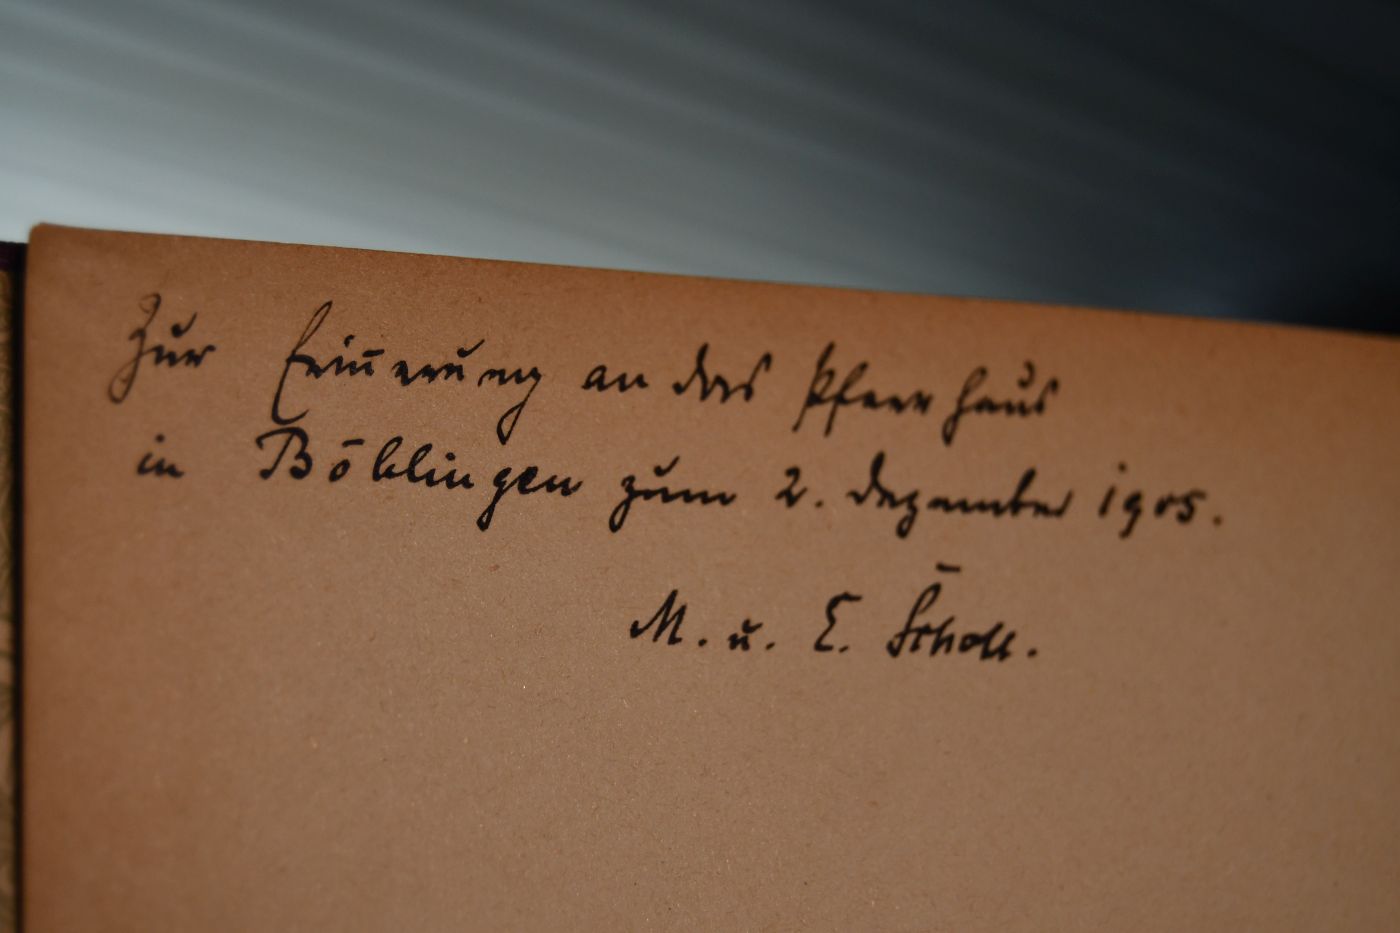 Zur Erinnerung an das Pfarrhaus
in Böblingen zum 2. Dezember 1905.
M. u. E. Scholl.